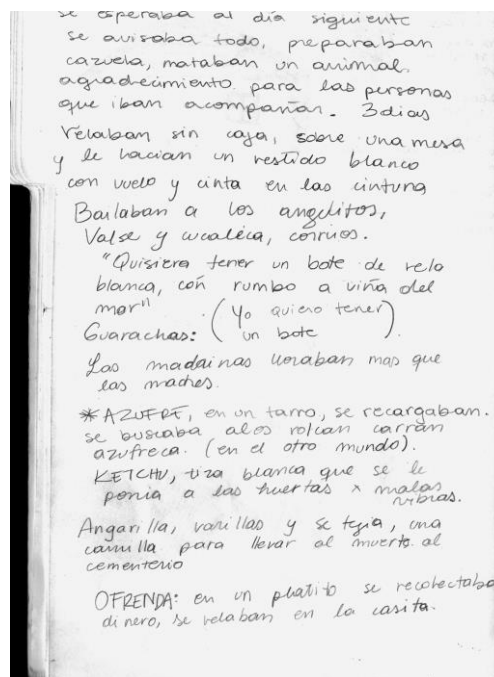 se esperaba al día siguiente
se avisaba todo, preparaban
cazuela, mataban un animal.
agradecimiento para las personas
que iban acompañar. 3 dias
velaban sin caja, sobre una mesa
y le hacian un vestido blanco
con vuelo y cinta en las cintura
Bailaban a los angelitos,
Valse y cucaleca, corrios.
"Quisiera tener un bote de vela
blanca, con rumbo a viña del
mar"
(Yo quiero tener
Guarachas: un bote).
Las madrinas lloraban mas que
las madres.
*AZUFRE, en un tarro, se recargaban.
se buscaba a los volcan
azufreca. (en el otro mundo).
KETCHU, tiza blanca que se le
ponia a las huertas x malas
vibras.
Angarilla, varillas y se tejia, una
camilla para llevar al muerto al
cementerio
OFRENDA: en un platito se recolectaba
dinero, se velaban en la casita.